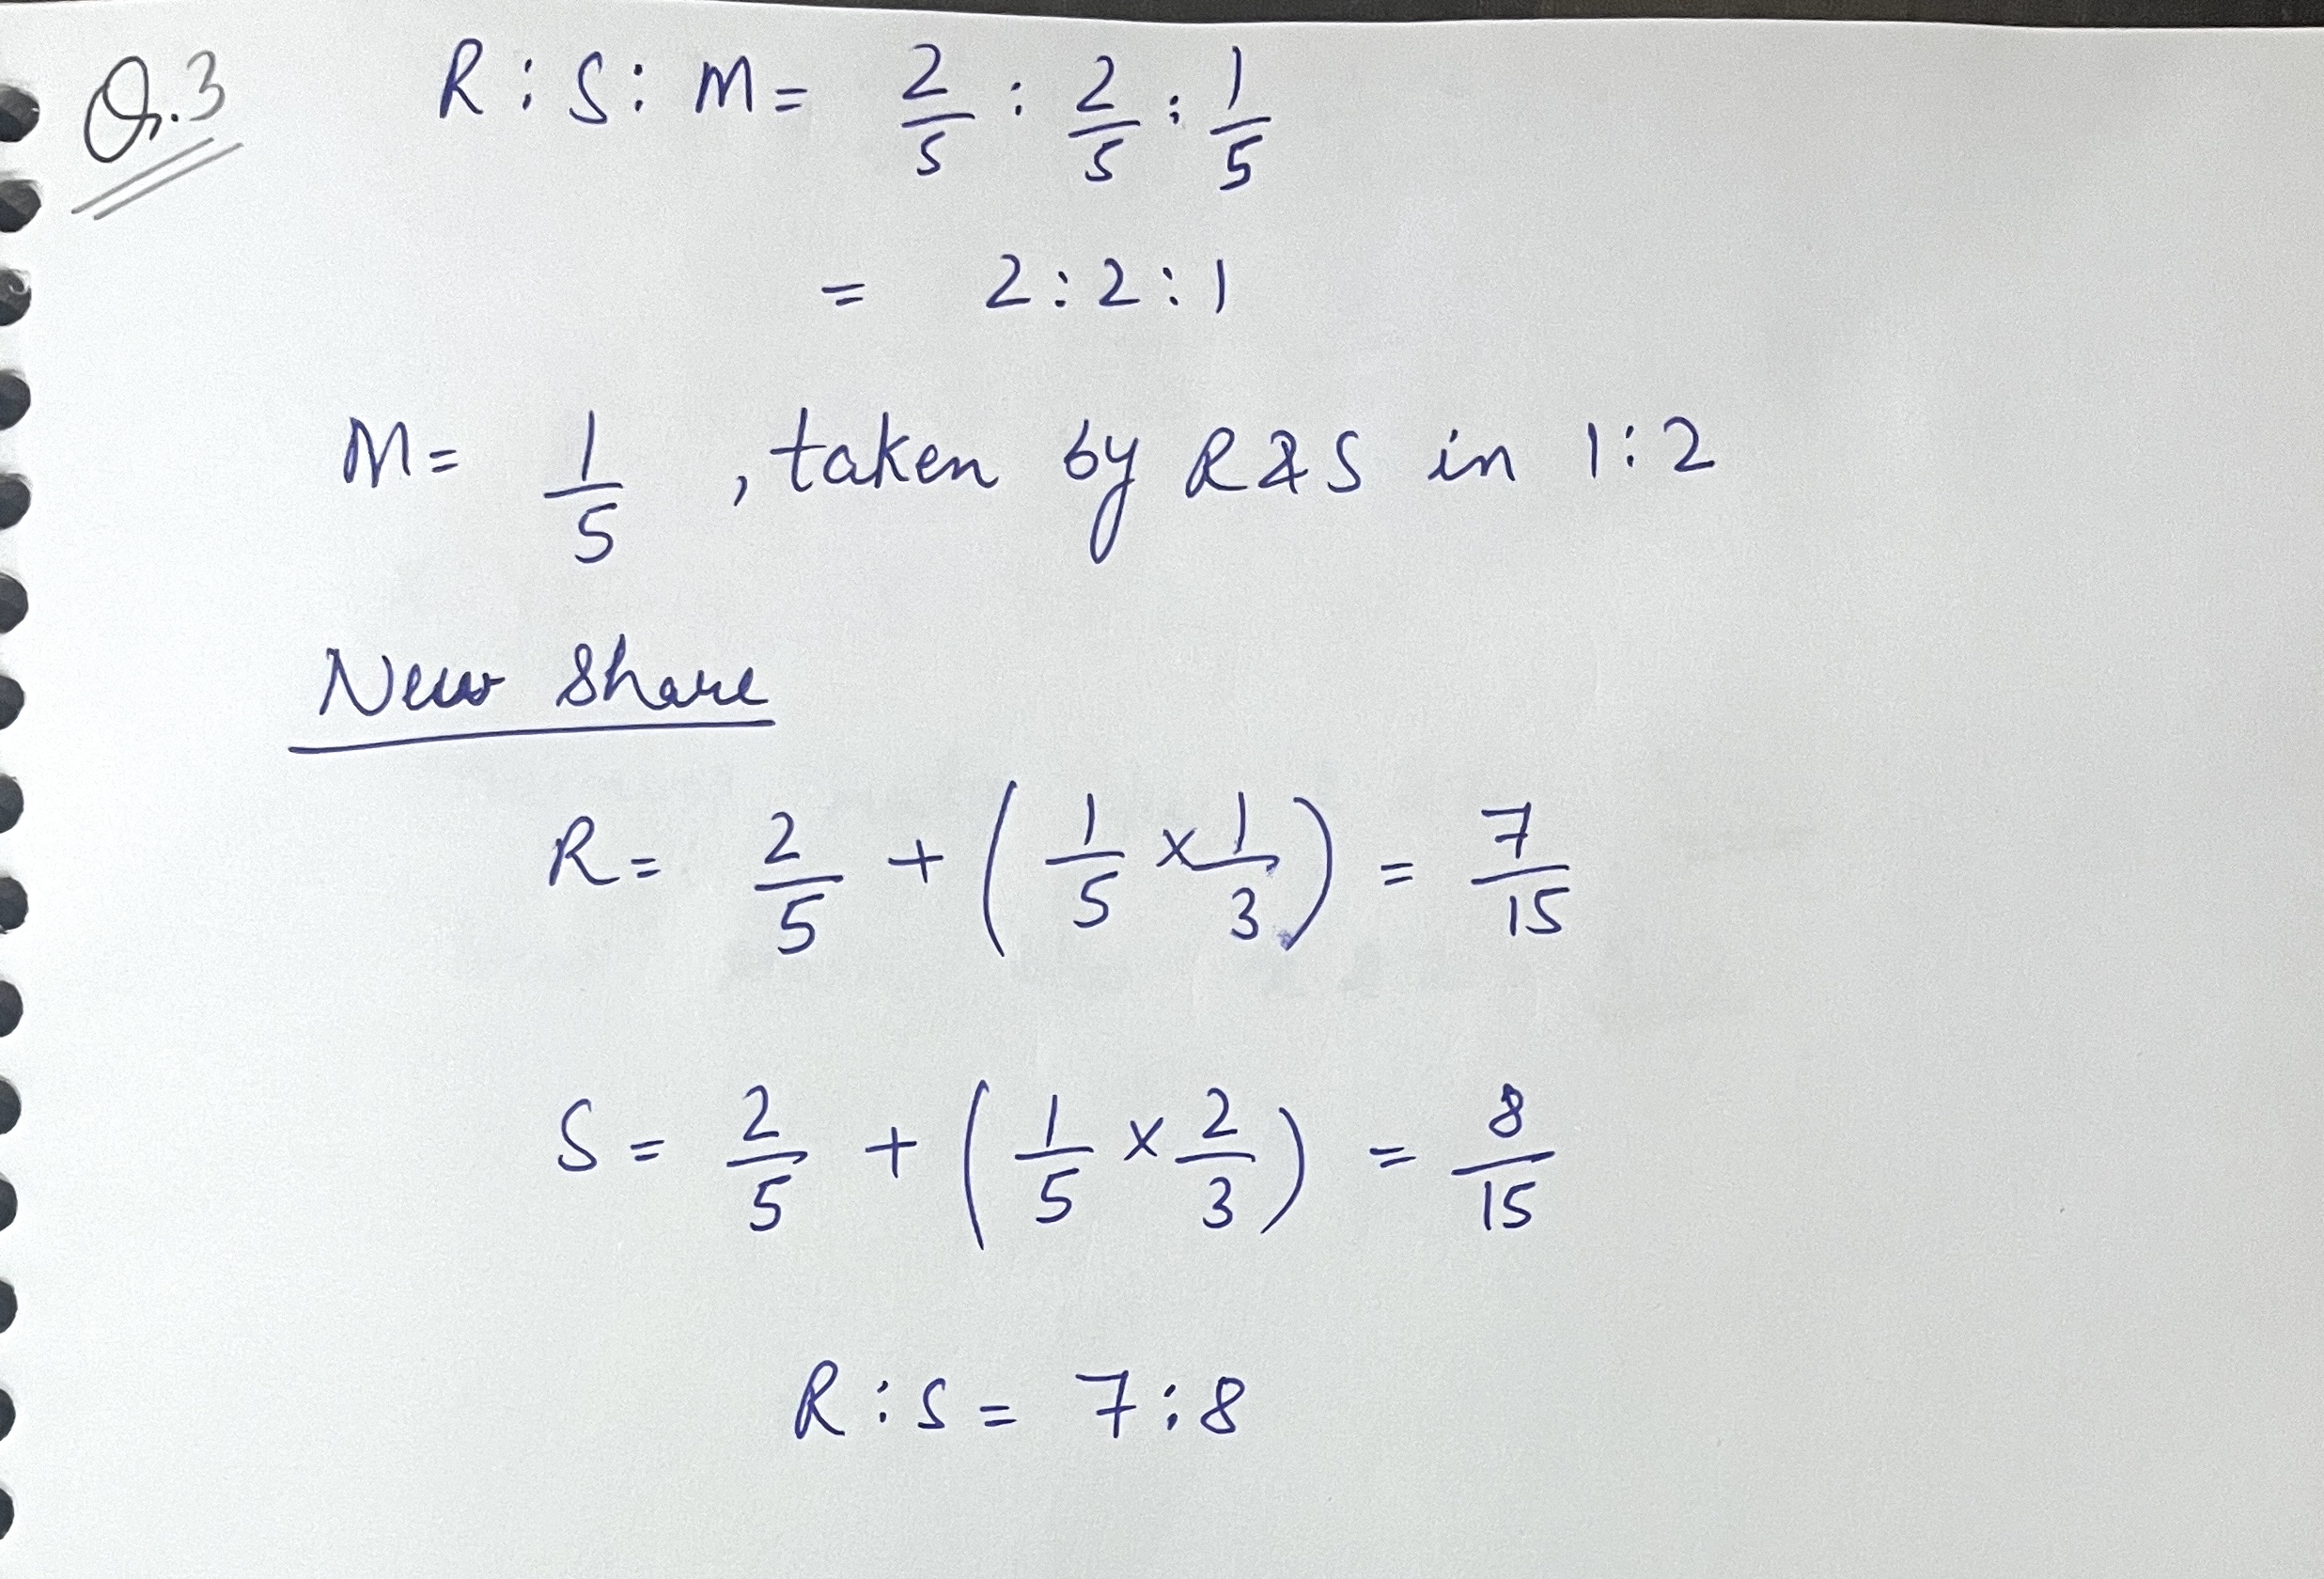 Q.3 R : S : M = 2/5 : 2/5 : 1/5
= 2 : 2 : 1
M = 1/5 , taken by R & S in 1 : 2
New Share
R = 2/5 + ( 1/5 × 1/3 ) = 7/15
S = 2/5 + ( 1/5 × 2/3 ) = 8/15
R : S = 7 : 8